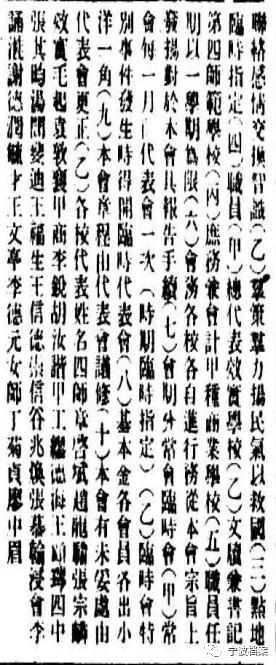 聯絡感情交換智識（乙）羣策羣力揚民氣以救國（三）點地
臨時指定（四）職員（甲）總代表效實學校（乙）文牘兼書記
第四師範學校（丙）庶務兼會計甲種商業學校（五）職員任
期以一學期為限（六）會務各校各自進行務從本會宗旨上
發揚對於本會具報告手續（七）會期分常會臨時會（甲）常
會每一月開代表會一次（時期臨時指定）（乙）臨時會特
別事件發生時得開臨時代表會（八）基本金各會員各出小
洋一角（九）本會章程由代表會議修（十）本會有未妥處由
代表會更正（乙）各校代表姓名四師章啓斌趙龍驤張宗麟
效實毛起袁敦襄甲商李銳胡汝諧甲工繆德海王頤瑞四中
張其昀湯開變迪王福生王信德張信谷兆煥張慕翰浸會李
誦淮謝德潤毓才王文亭李德元女師丁菊貞廖中眉
宁波档案